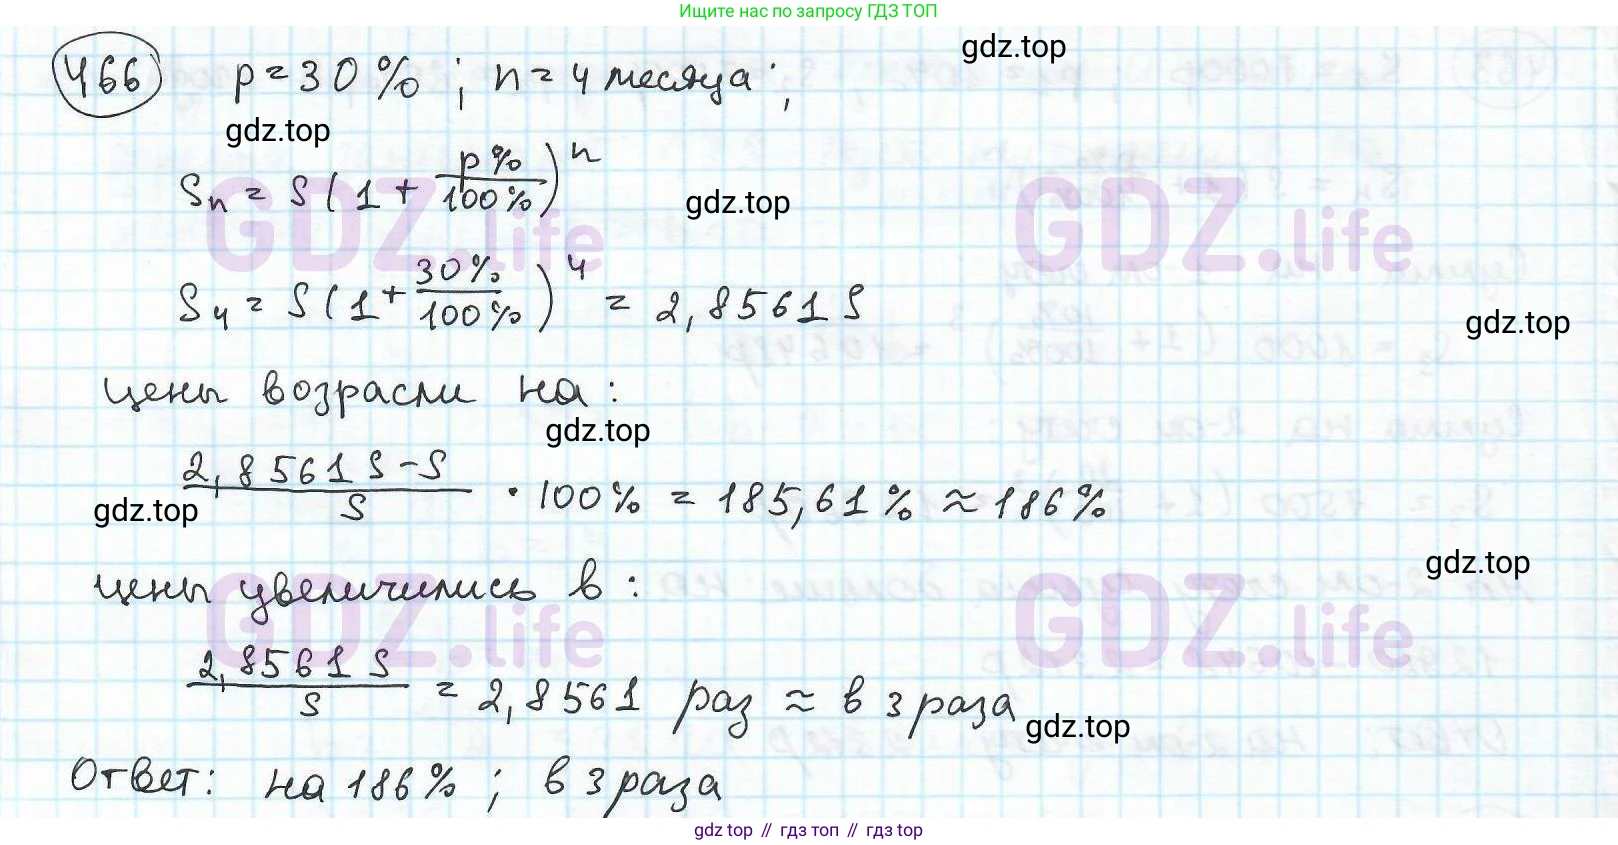 Ищите нас по запросу ГДЗ ТОП
466 p = 30 % ; n = 4 месяца ;
gdz.top
gdz.top
Sₙ = S (1 + p% / 100%)ⁿ
gdz.top
GDZ.life
GDZ.life
S₄ = S (1 + 30% / 100%)⁴ = 2,8561 S
gdz.top
цены возрасли на :
gdz.top
2,8561 S - S / S · 100% = 185,61% ≈ 186%
gdz.top
gdz.top
цены увеличились в :
GDZ.life
GDZ.life
2,8561 S / S = 2,8561 раз ≈ в 3 раза
gdz.top
Ответ: на 186% ; в 3 раза
gdz top // гдз топ // гдз top